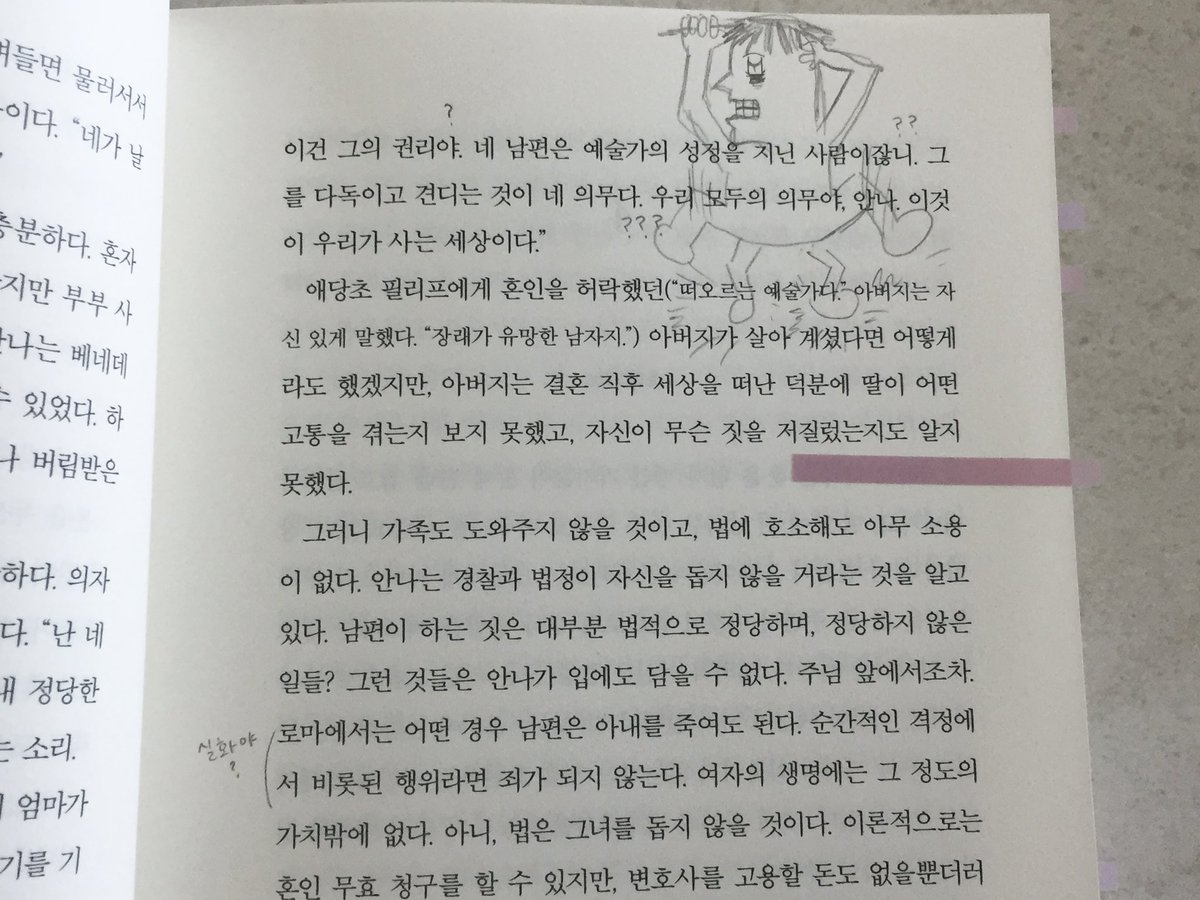 며들면 물러서서
이다. “네가 날
충분하다. 혼자
지만 부부 사
안나는 베네데
수 있었다. 하
나 버림받은
하다. 의자
다. “난 네
내 정당한
는 소리.
엄마가
기를 기
?
??
이건 그의 권리야. 네 남편은 예술가의 성정을 지닌 사람이잖니. 그
를 다독이고 견디는 것이 네 의무다. 우리 모두의 의무야, 안나. 이것
???
이 우리가 사는 세상이다.”
애당초 필리프에게 혼인을 허락했던(“떠오르는 예술가다.” 아버지는 자
신 있게 말했다. “장래가 유망한 남자지.”) 아버지가 살아 계셨다면 어떻게
라도 했겠지만, 아버지는 결혼 직후 세상을 떠난 덕분에 딸이 어떤
고통을 겪는지 보지 못했고, 자신이 무슨 짓을 저질렀는지도 알지
못했다.
그러니 가족도 도와주지 않을 것이고, 법에 호소해도 아무 소용
이 없다. 안나는 경찰과 법정이 자신을 돕지 않을 거라는 것을 알고
있다. 남편이 하는 짓은 대부분 법적으로 정당하며, 정당하지 않은
일들? 그런 것들은 안나가 입에도 담을 수 없다. 주님 앞에서조차.
로마에서는 어떤 경우 남편은 아내를 죽여도 된다. 순간적인 격정에
실화야
?
서 비롯된 행위라면 죄가 되지 않는다. 여자의 생명에는 그 정도의
가치밖에 없다. 아니, 법은 그녀를 돕지 않을 것이다. 이론적으로는
혼인 무효 청구를 할 수 있지만, 변호사를 고용할 돈도 없을뿐더러